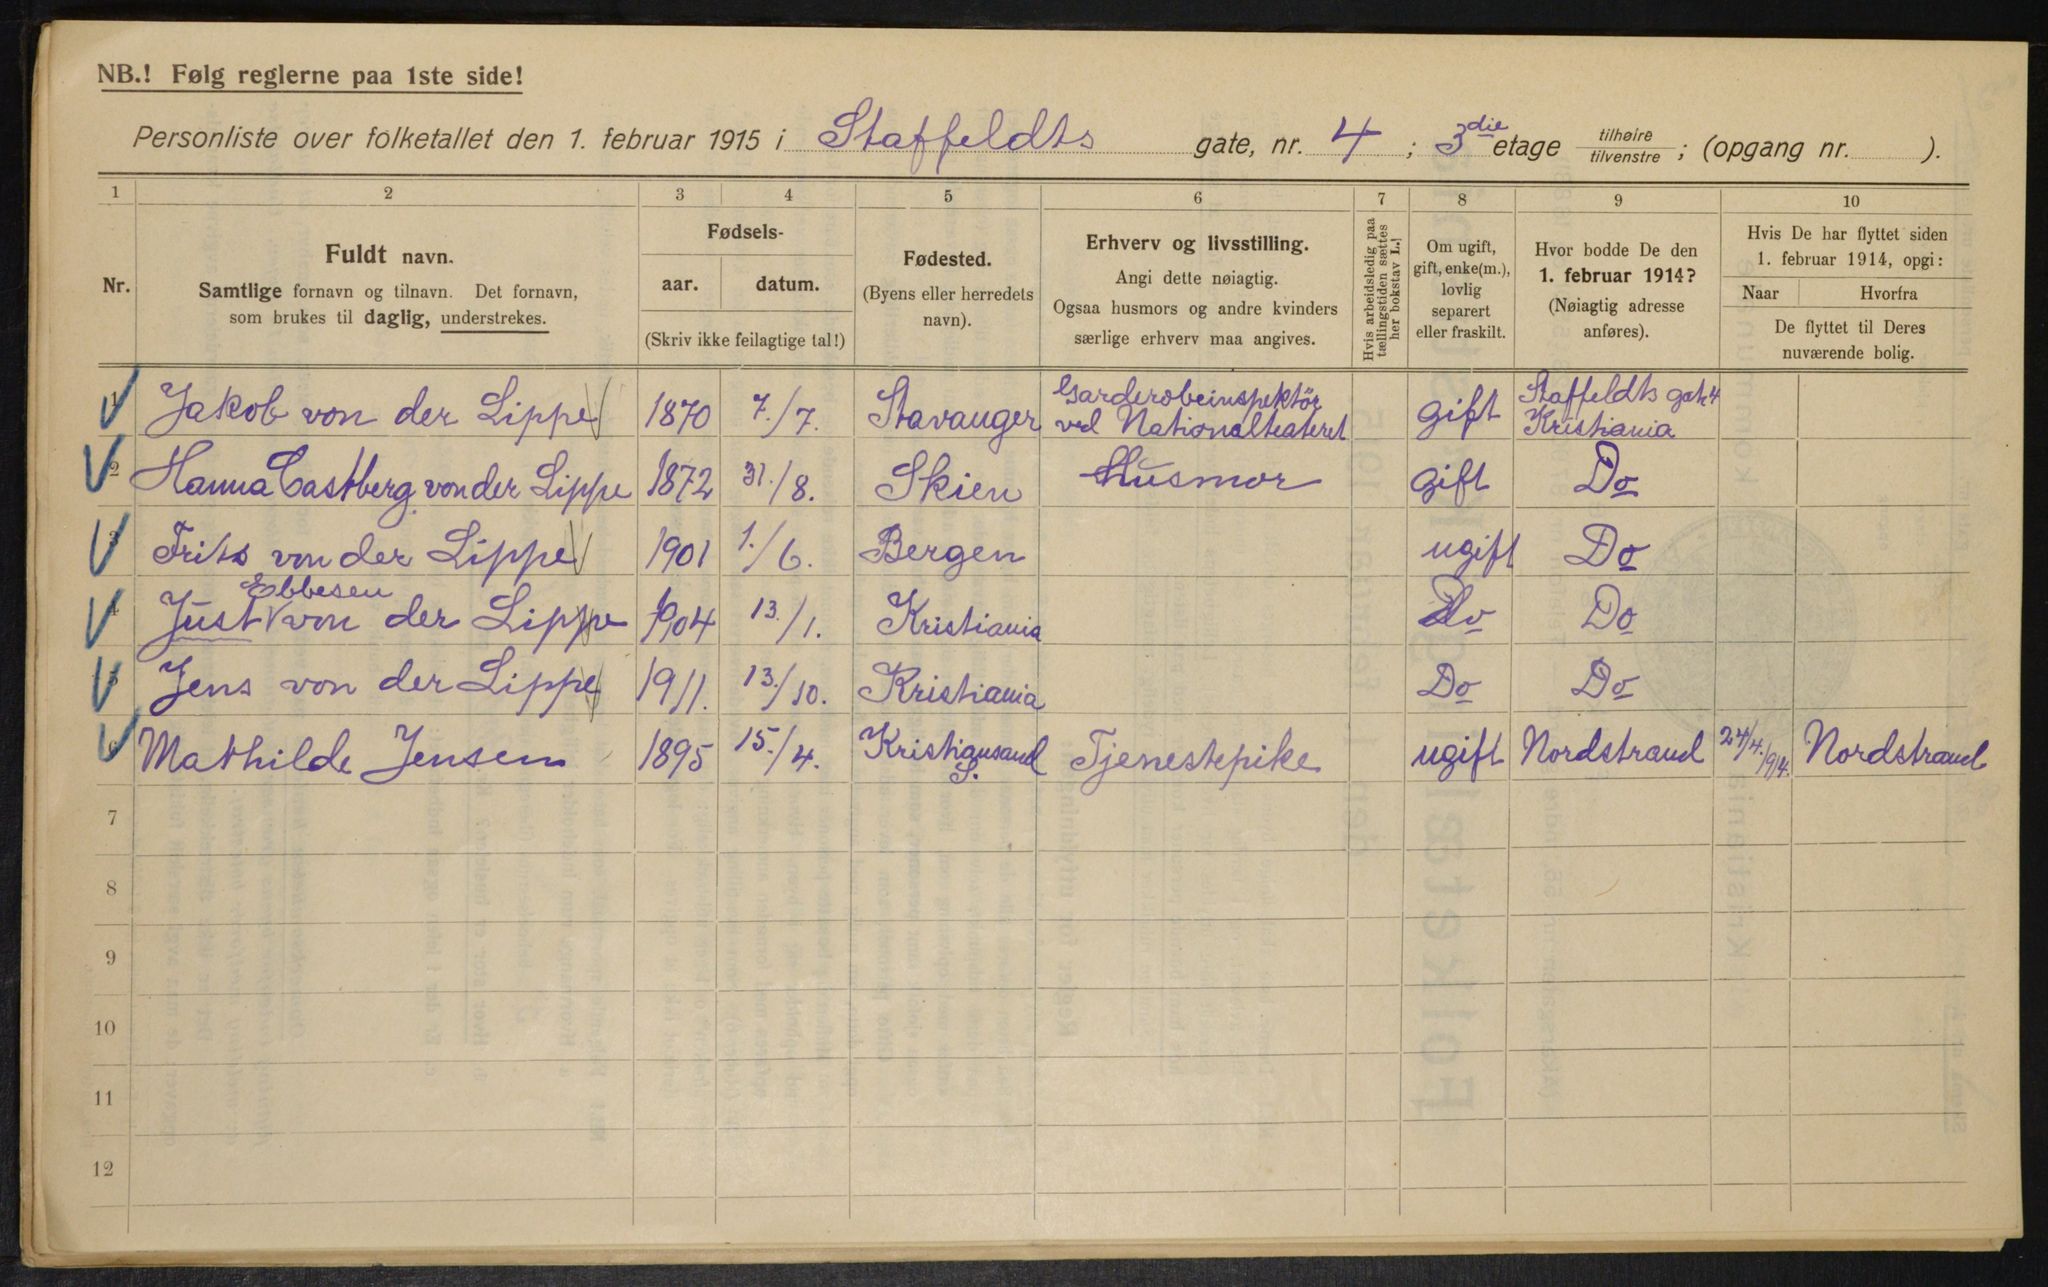 NB.! Følg reglerne paa 1ste side!
Personliste over folketallet den 1. februar 1915 i Staffeldts gate, nr. 4 ; 3die etage tilhøire / tilvenstre ; (opgang nr. ).
1 2 3 4 5 6 7 8 9 10
Nr.
Fuldt navn.
Samtlige fornavn og tilnavn. Det fornavn,
som brukes til daglig, understrekes.
Fødsels-
aar. datum.
(Skriv ikke feilagtige tal!)
Fødested.
(Byens eller herredets
navn).
Erhverv og livsstilling.
Angi dette nøiagtig.
Ogsaa husmors og andre kvinders
særlige erhverv maa angives.
Hvis arbeidsledig paa
tællingstiden sættes
her bokstav L.]
Om ugift,
gift, enke(m.),
lovlig
separert
eller fraskilt.
Hvor bodde De den
1. februar 1914?
(Nøiagtig adresse
anføres).
Hvis De har flyttet siden
1. februar 1914, opgi:
Naar Hvorfra
De flyttet til Deres
nuværende bolig.
1 Jakob von der Lippe 1870 7./7. Stavanger Garderobeinspektör ved Nationalteateret gift Staffeldts gate 4 Kristiania
2 Hanna Castberg von der Lippe 1872 31./8. Skien Husmor gift Do
3 Frits von der Lippe 1901 1./6. Bergen ugift Do
4 Just Ebbesen von der Lippe 1904 13./1. Kristiania Do Do
5 Jens von der Lippe 1911. 13./10. Kristiania Do Do
6 Mathilde Jensen 1895 15./4. Kristiansand S. Tjenestepike ugift Nordstrand 24/4./914. Nordstrand
7
8
9
10
11
12